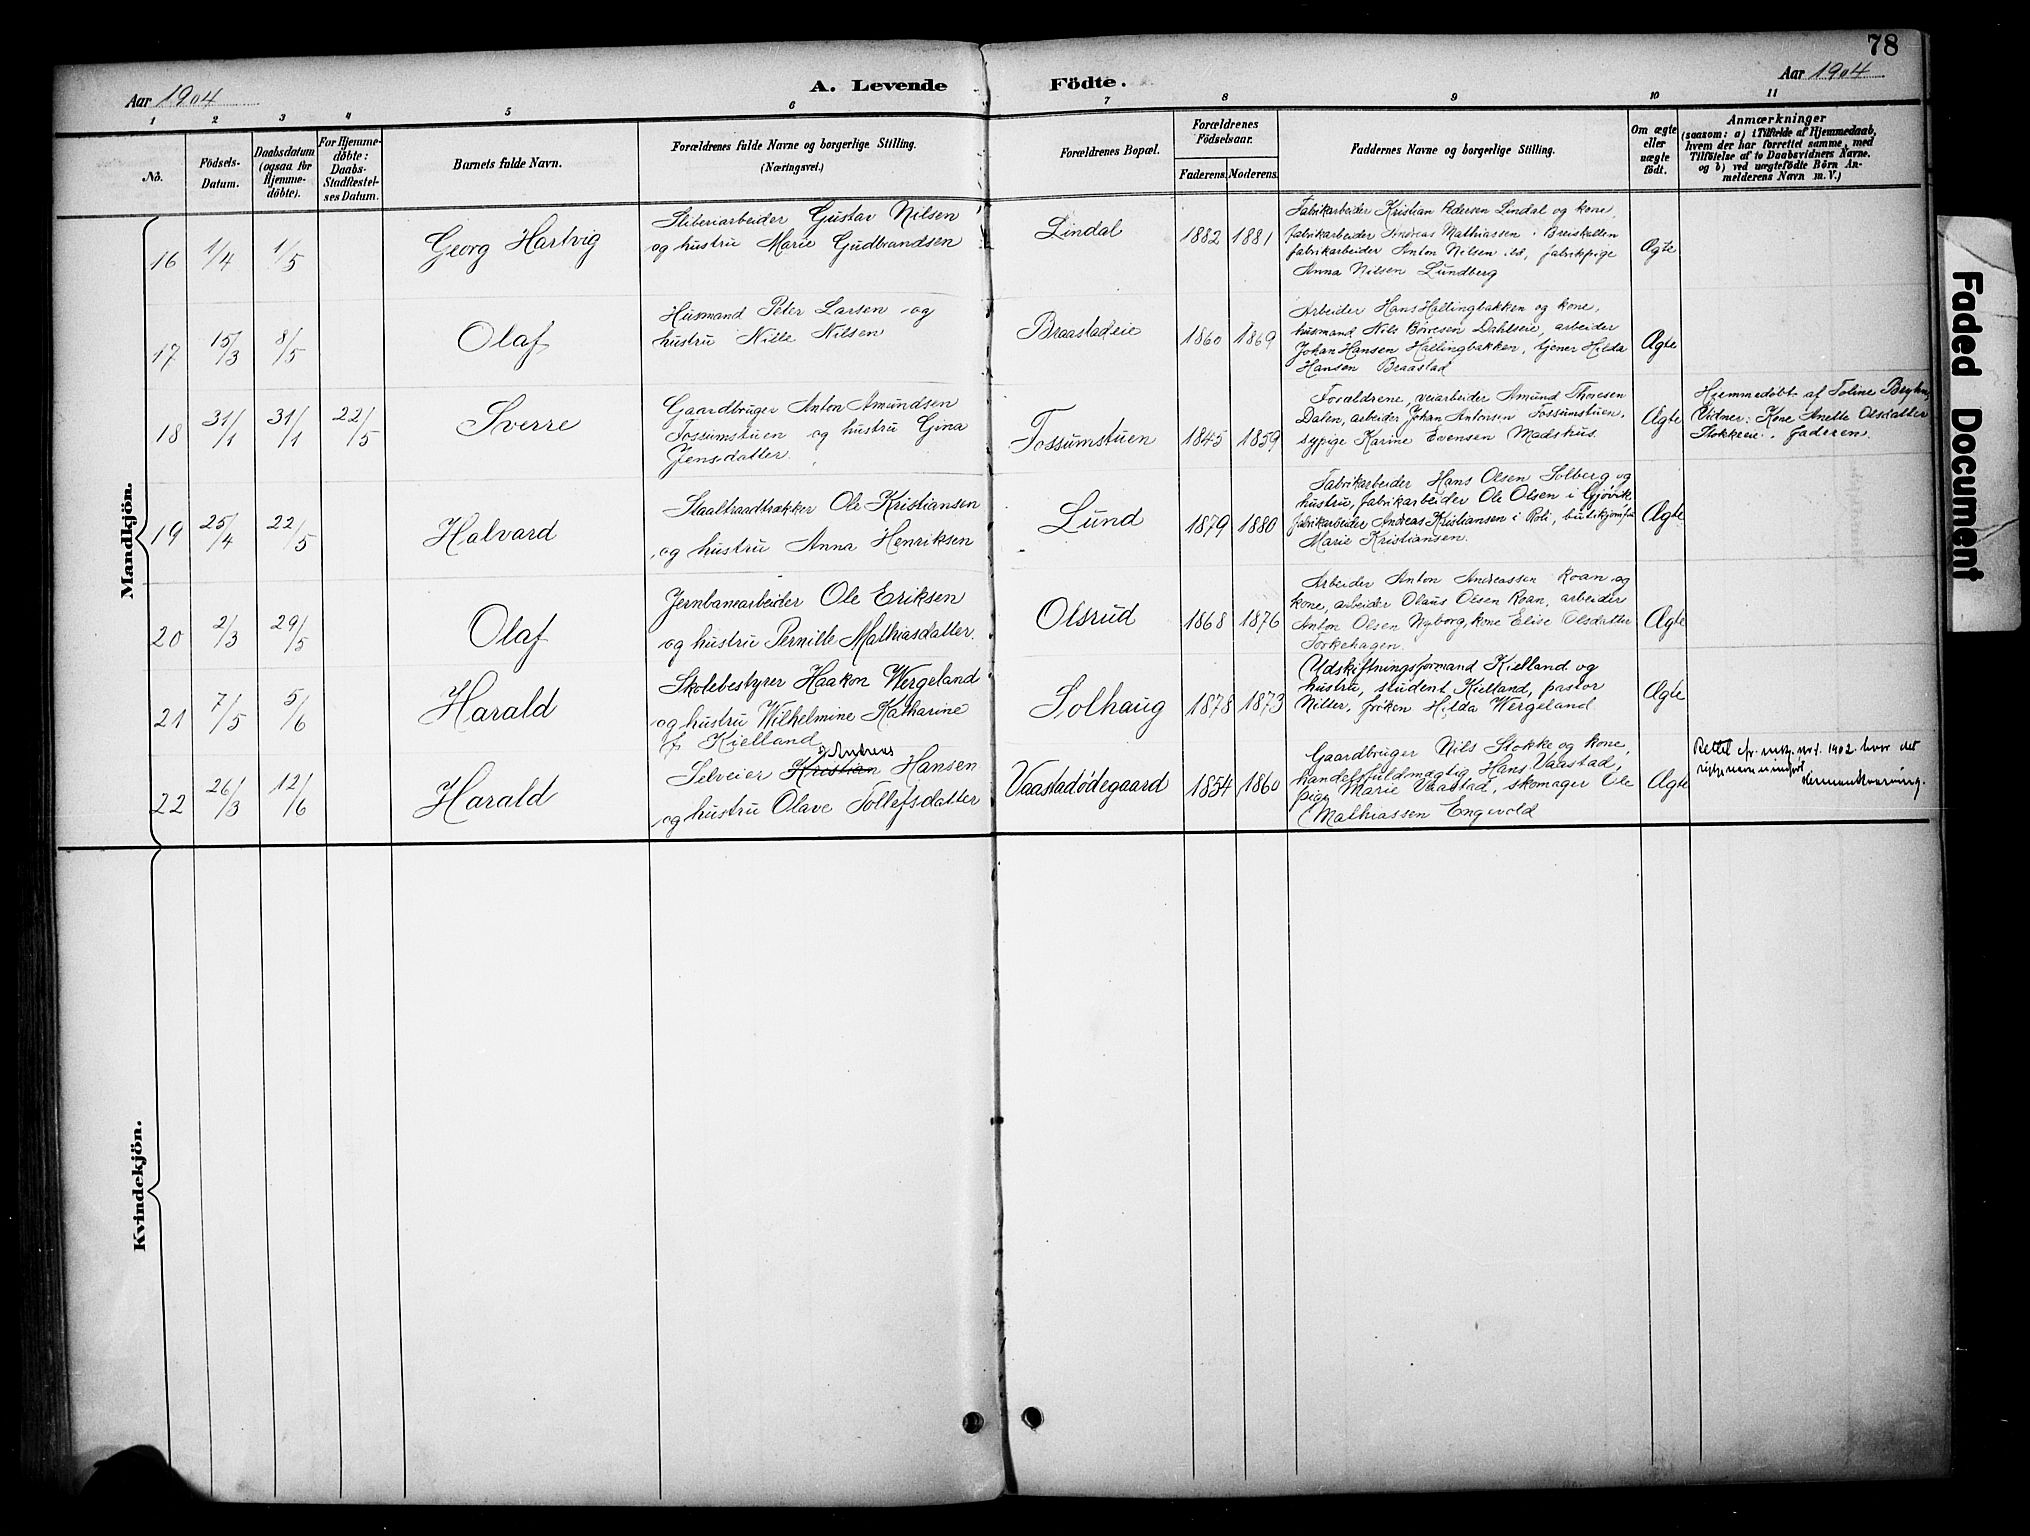 78
Aar 1904
A. Levende Födte.
Aar 1904
1 2 3 4 5 6 7 8 9 10 11
No.
Födsels-
Datum.
Daabsdatum
(ogsaa for
Hjemme-
döbte).
For Hjemme-
döbte:
Daabs-
Stadfæstel-
ses Datum.
Barnets fulde Navn.
Forældrenes fulde Navne og borgerlige Stilling.
(Næringsvei.)
Forældrenes Bopæl.
Forældrenes
Födselsaar.
Faderens. Moderens.
Faddernes Navne og borgerlige Stilling.
Om ægte
eller
uægte
födt.
Anmærkninger
(saasom: a) i Tilfælde af Hjemmedaab,
hvem der har forrettet samme, med
Tilföielse af to Daabsvidners Navne.
og b) ved uægtefödte Börn An-
melderens Navn m. V.)
Mandkjön.
16 1/4 1/5
Georg Hartvig
Sliberiarbeider Gustav Nilsen
og hustru Marie Gudbrandsen
Lindal
1882 1881
Fabrikarbeider Kristian Pedersen Lindal og kone,
fabrikarbeider Andreas Mathiassen i Breiskallen
fabrikarbeider Anton Nilsen ibd, fabrikpige
Anna Nilsen Lundberg
Ægte
17 15/3 8/5
Olaf
Husmand Peter Larsen og
hustru Nille Nilsen
Braastadeie
1860 1869
Arbeider Hans Hallingbakken og kone,
husmand Nils Børresen Dahlseie, arbeider
Johan Hansen Hallingbakken, tjener Hilda
Hansen Braastad
Ægte
18 31/1 31/1 22/5
Sverre
Gaardbruger Anton Amundsen
Fossumstuen og hustru Gina
Jensdatter.
Fossumstuen
1845 1859
Forældrene, veiarbeider Amund Thoresen
Dalen, arbeider Johan Antonsen Fossumstuen,
sypige Karine Evensen Madshus.
Ægte
Hjemmedøbt af Toline
Vidner: Kone Anette Olsdatter
Stokkeeie. Faderen.
19 25/4 22/5
Halvard
Staaltraadtrækker Ole Kristiansen
og hustru Anna Henriksen
Lund
1879 1880
Fabrikarbeider Hans Olsen Solberg og
hustru, fabrikarbeider Ole Olsen i Gjøvik
fabrikarbeider Andreas Kristiansen i Roli, butikjomfru
Marie Kristiansen.
Ægte
20 2/3 29/5
Olaf
Jernbanearbeider Ole Eriksen
og hustru Pernille Mathiasdatter.
Olsrud
1868 1876
Arbeider Anton Andreassen Roan og
kone, arbeider Olaus Olsen Roan, arbeider
Anton Olsen Nyborg, kone Elise Olsdatter
Torkehagen.
Ægte
21 7/5 5/6
Harald
Skolebestyrer Haakon Wergeland
og hustru Wilhelmine Katharine
f. Kielland
Solhaug
1878 1873
Udskiftningsformand Kielland og
hustru, student Kielland, pastor
Nitter, frøken Hilda Wergeland
Ægte
22 26/3 12/6
Harald
Andreas
Selveier Kristian Hansen
og hustru Olave Tollefsdatter
Vaastadødegaard
1854 1860
Gaardbruger Nils Stokke og kone,
handelsfuldmægtig Hans Vaastad,
pige Marie Vaastad, skomager Ole
Mathiassen Engevold
Ægte
Rettet cfr. nr. 1. 1902. hvor det
rigtige navn er indført.
Kvindekjön.
Faded Document